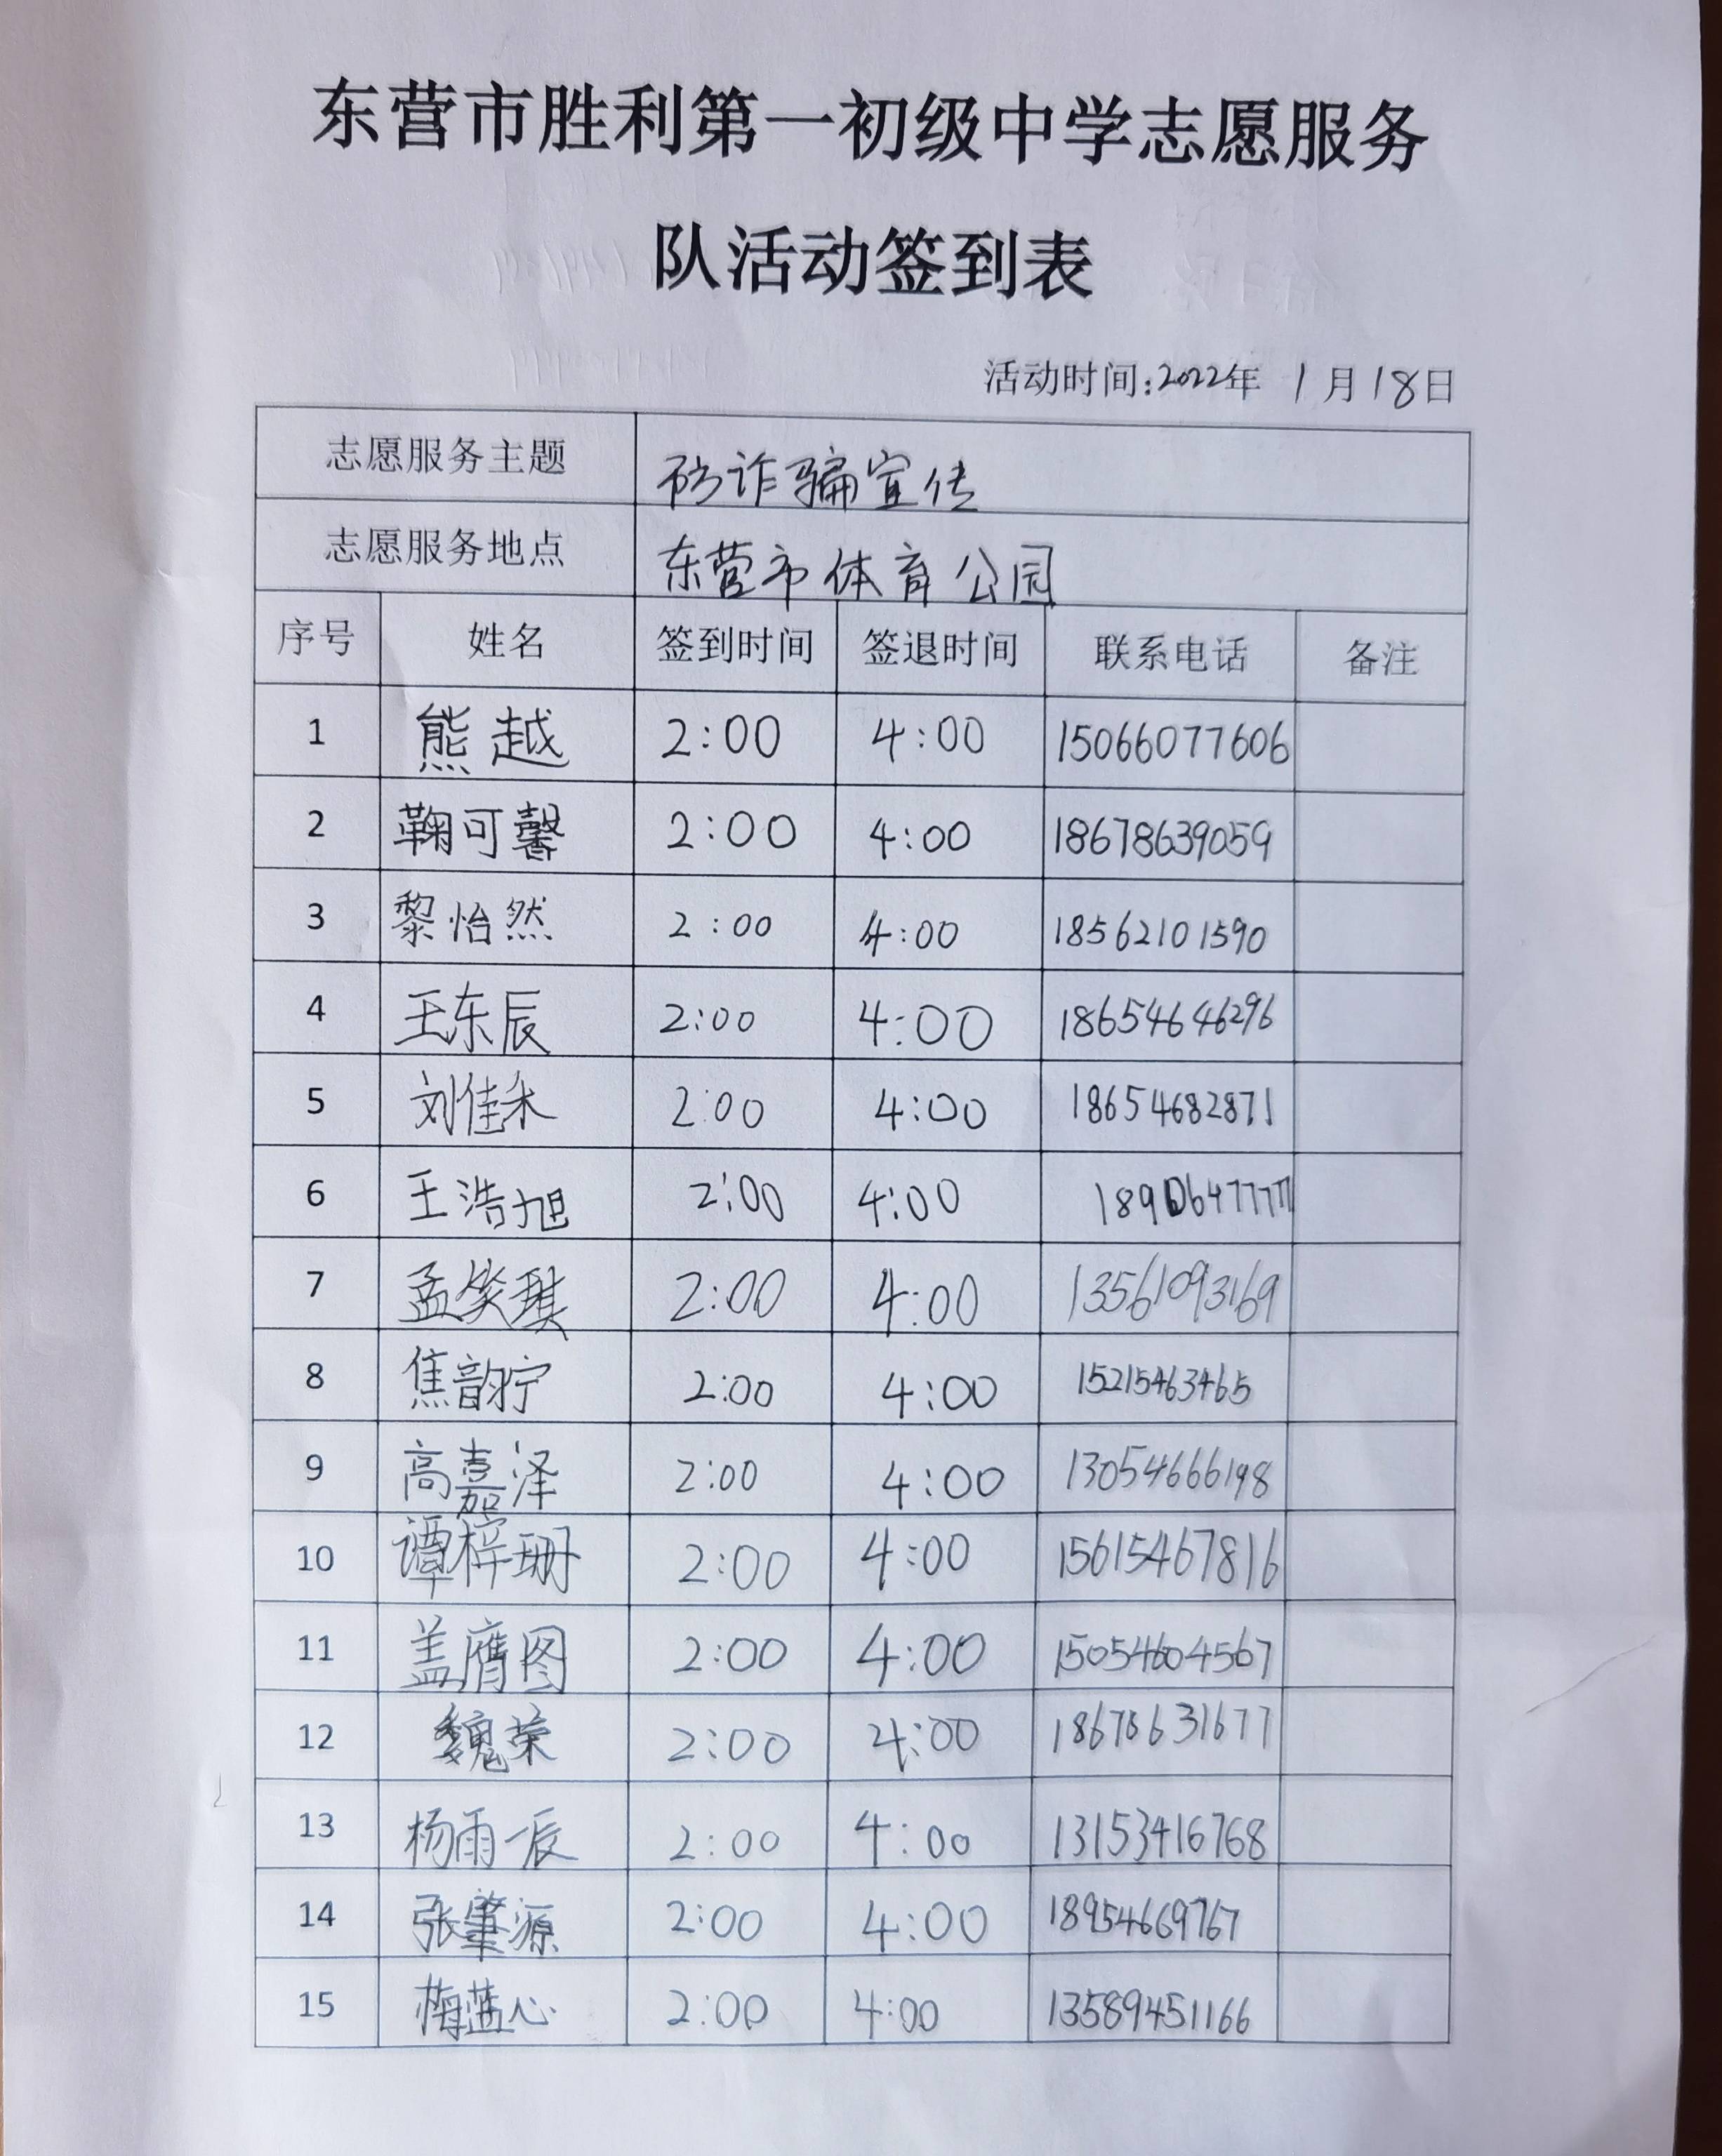 东营市胜利第一初级中学志愿服务
队活动签到表
活动时间:2022年 1月18日
志愿服务主题 防诈骗宣传
志愿服务地点 东营市体育公园
序号 姓名 签到时间 签退时间 联系电话 备注
1 熊越 2:00 4:00 15066077606
2 鞠可馨 2:00 4:00 18678639059
3 黎怡然 2:00 4:00 18562101590
4 王东辰 2:00 4:00 18654646296
5 刘佳禾 2:00 4:00 18654682871
6 王浩旭 2:00 4:00
7 孟笑琪 2:00 4:00 13561093169
8 焦韵宁 2:00 4:00 15215463465
9 高嘉泽 2:00 4:00 13054666198
10 谭梓珊 2:00 4:00 15615467816
11 盖膺图 2:00 4:00 15054604567
12 魏荣 2:00 4:00 18678631677
13 杨雨辰 2:00 4:00 13153416768
14 张肇源 2:00 4:00 18954669767
15 梅蓝心 2:00 4:00 13589451166